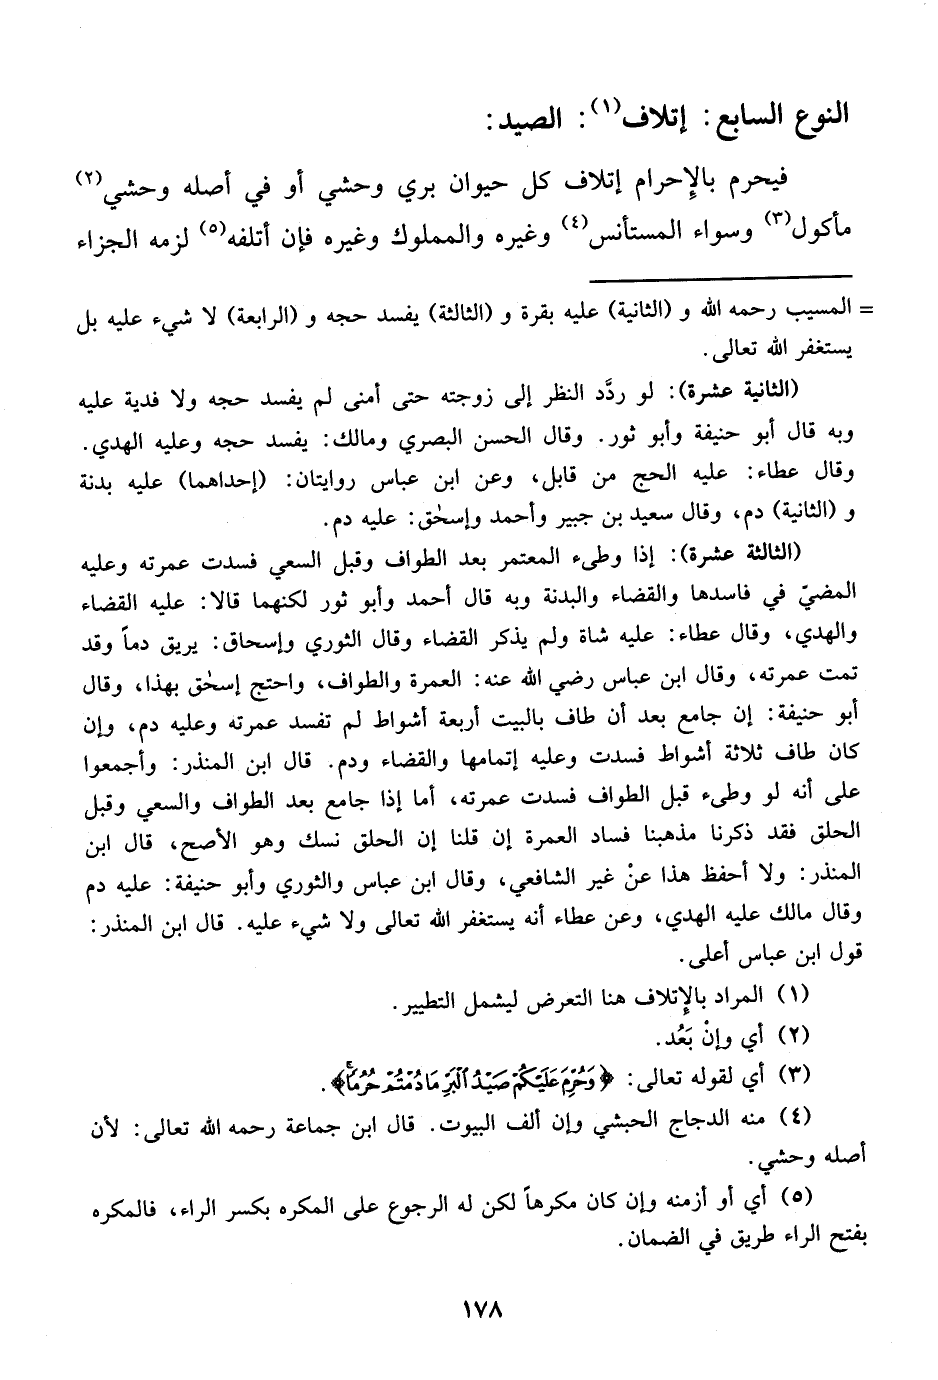 النوع السابع: إتلاف(١): الصيد:
فيحرم بالإحرام إتلاف كل حيوان بري وحشي أو في أصله وحشي(٢)
مأكول(٣) وسواء المستأنس(٤) وغيره والمملوك وغيره فإن أتلفه(٥) لزمه الجزاء
= المسيب رحمه الله و (الثانية) عليه بقرة و (الثالثة) يفسد حجه و (الرابعة) لا شيء عليه بل
يستغفر الله تعالى.
(الثانية عشرة): لو ردَّد النظر إلى زوجته حتى أمنى لم يفسد حجه ولا فدية عليه
وبه قال أبو حنيفة وأبو ثور. وقال الحسن البصري ومالك: يفسد حجه وعليه الهدي.
وقال عطاء: عليه الحج من قابل، وعن ابن عباس روايتان: (إحداهما) عليه بدنة
و (الثانية) دم، وقال سعيد بن جبير وأحمد وإسحٰق: عليه دم.
(الثالثة عشرة): إذا وطىء المعتمر بعد الطواف وقبل السعي فسدت عمرته وعليه
المضيّ في فاسدها والقضاء والبدنة وبه قال أحمد وأبو ثور لكنهما قالا: عليه القضاء
والهدي، وقال عطاء: عليه شاة ولم يذكر القضاء وقال الثوري وإسحاق: يريق دماً وقد
تمت عمرته، وقال ابن عباس رضي الله عنه: العمرة والطواف، واحتج إسحٰق بهذا، وقال
أبو حنيفة: إن جامع بعد أن طاف بالبيت أربعة أشواط لم تفسد عمرته وعليه دم، وإن
كان طاف ثلاثة أشواط فسدت وعليه إتمامها والقضاء ودم. قال ابن المنذر: وأجمعوا
على أنه لو وطىء قبل الطواف فسدت عمرته، أما إذا جامع بعد الطواف والسعي وقبل
الحلق فقد ذكرنا مذهبنا فساد العمرة إن قلنا إن الحلق نسك وهو الأصح، قال ابن
المنذر: ولا أحفظ هذا عنْ غير الشافعي، وقال ابن عباس والثوري وأبو حنيفة: عليه دم
وقال مالك عليه الهدي، وعن عطاء أنه يستغفر الله تعالى ولا شيء عليه. قال ابن المنذر:
قول ابن عباس أعلى.
(١) المراد بالإتلاف هنا التعرض ليشمل التطيير.
(٢) أي وإنْ بَعُد.
(٣) أي لقوله تعالى: ﴿وَحُرِّمَ عَلَيْكُمْ صَيْدُ ٱلْبَرِّ مَا دُمْتُمْ حُرُمًاۗ﴾.
(٤) منه الدجاج الحبشي وإن ألف البيوت. قال ابن جماعة رحمه الله تعالى: لأن
أصله وحشي.
(٥) أي أو أزمنه وإن كان مكرهاً لكن له الرجوع على المكره بكسر الراء، فالمكره
بفتح الراء طريق في الضمان.
١٧٨